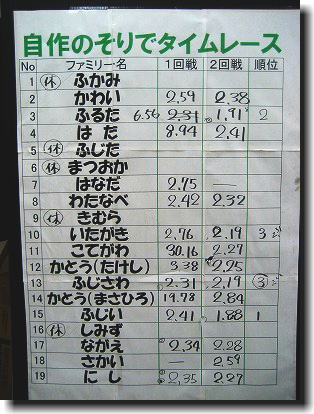 自作のそりでタイムレース
No ファミリー名 1回戦 2回戦 順位
1 休 ふかみ
2 かわい 2.59 2.38
3 ふるた 6.56 2.31 1.91 2
4 はだ 8.94 2.41
5 休 ふじた
6 休 まつおか
7 はなだ 2.75 —
8 わたなべ 2.42 2.32
9 休 きむら
10 いたがき 2.76 2.19 3
11 こてがわ 30.16 2.27
12 かとう(たけし) 3.38 2.25
13 ふじさわ 2.31 2.19 ③
14 かとう(まさひろ) 19.78 2.84
15 ふじい 2.41 1.88 1
16 休 しみず
17 ながえ 2.34 2.28
18 さかい — 2.59
19 にし 2.35 2.27